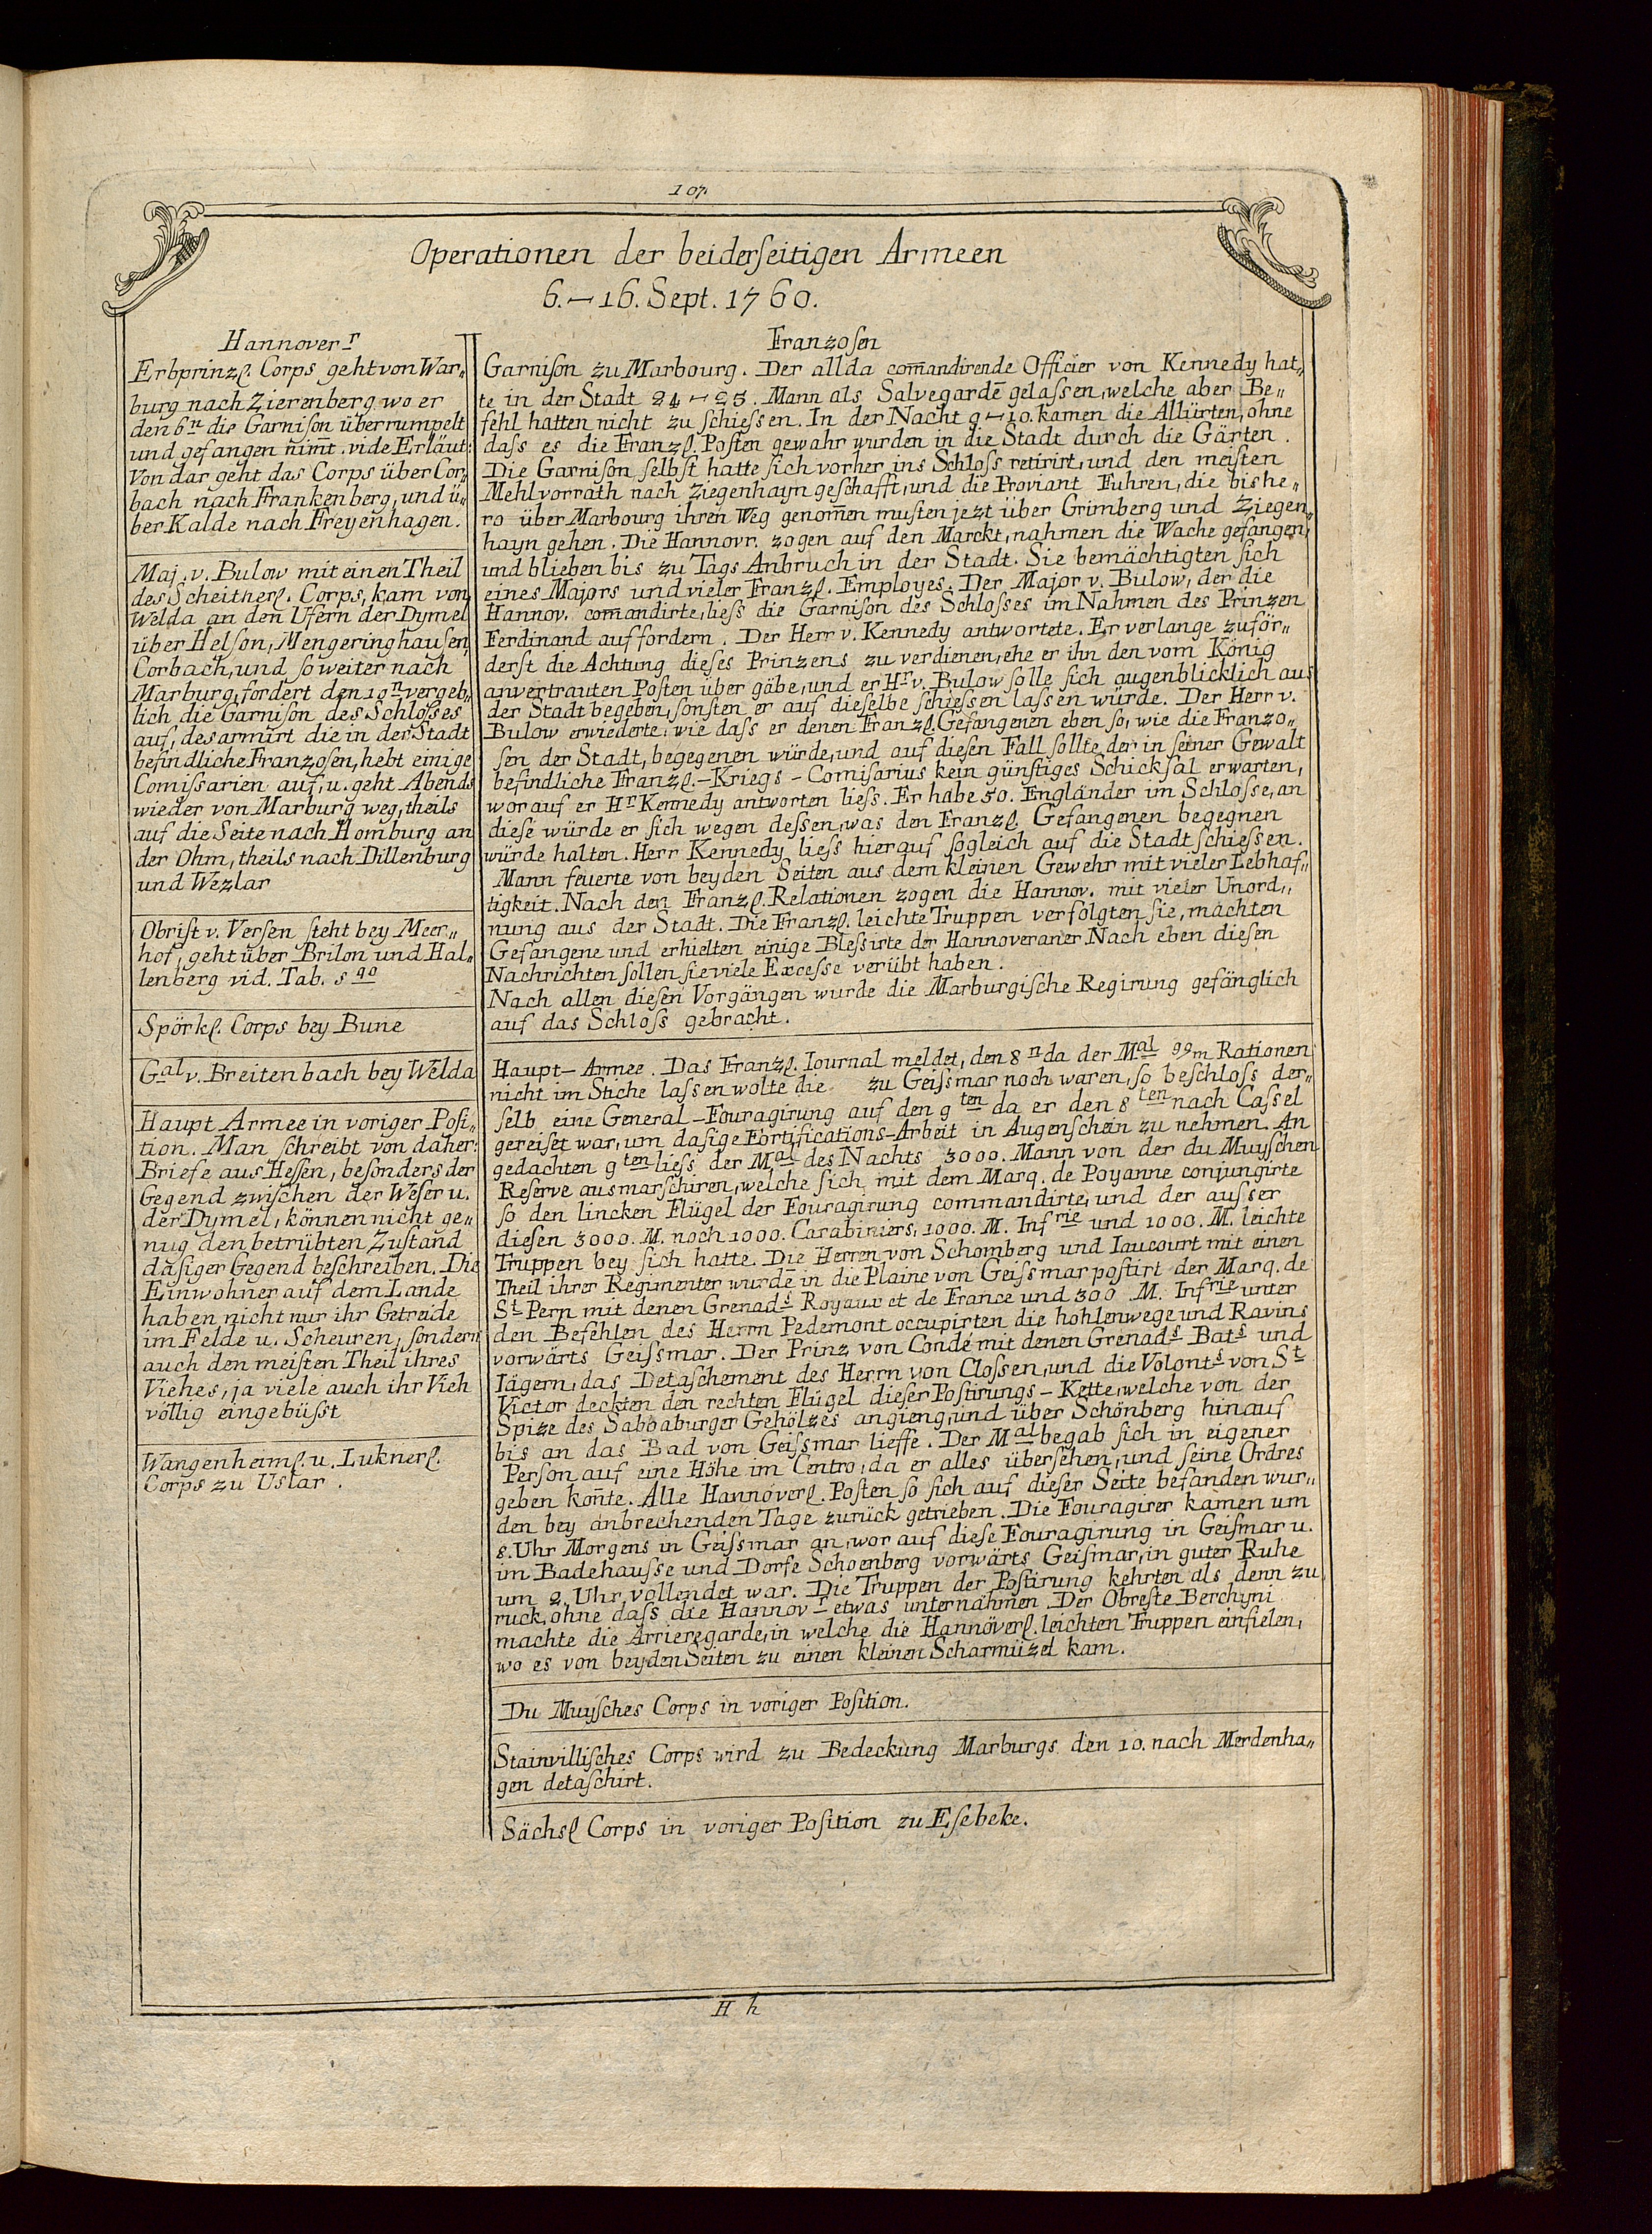 107.
Operationen der beiderſeitigen Armeen
6.–16. Sept. 1760.
Hannover r
Erbprinzl. Corps geht von War„
burg nach Zierenberg wo er
den 6n die Garniſon überrumpelt
und gefangen nim̄t. vide Erläut:
Von dar geht das Corps über Cor„
bach nach Frankenberg, und ü„
ber Kalde nach Freyenhagen.
Maj. v. Bulow mit einen Theil
des Scheitherl. Corps, kam von
Welda an den Ufern der Dymel
über Helſon, Mengeringhauſen,
Corbach, und ſo weiter nach
Marburg, fordert den 10n vergeb„
lich die Garniſon des Schloſses
auf, desarmirt die in der Stadt
befindliche Franzoſen, hebt einige
Comiſsarien auf, u. geht Abends
wieder von Marburg weg, theils
auf die Seite nach Homburg an
der Ohm, theils nach Dillenburg
und Wezlar
Obriſt v. Verſen ſteht bey Meer„
hof, geht über Brilon und Hal„
lenberg vid. Tab. s 90
Spörkl. Corps bey Bune
Gal v. Breitenbach bey Welda
Haupt Armee in voriger Poſi„
tion. Man ſchreibt von daher:
Briefe aus Heſsen, beſonders der
Gegend zwiſchen der Weſer u.
der Dymel, können nicht ge„
nug den betrübten Zuſtand
daſiger Gegend beſchreiben. Die
Einwohner auf dem Lande
haben nicht nur ihr Getreide
im Felde u. Scheuren, ſondern
auch den meiſten Theil ihres
Viehes, ja viele auch ihr Vieh
völlig eingebüſst
Wangenheiml. u. Luknerl.
Corps zu Uslar.
Franzoſen
Garniſon zu Marbourg. Der allda com̄andirende Officier von Kennedy hat„
te in der Stadt 24–25. Mann als Salvegardē gelaſsen, welche aber Be„
fehl hatten nicht zu ſchieſsen. In der Nacht 9–10. kamen die Alliirten, ohne
daſs es die Franzl. Poſten gewahr wurden in die Stadt durch die Gärten.
Die Garniſon ſelbſt hatte ſich vorher ins Schloſs retirirt, und den meiſten
Mehlvorrath nach Ziegenhayn geſchafft, und die Proviant Fuhren, die bishe„
ro über Marbourg ihren Weg genom̄en muſten jezt über Grimberg und Ziegen„
hayn gehen. Die Hannovr. zogen auf den Marckt, nahmen die Wache gefangen,
und blieben bis zu Tags Anbruch in der Stadt. Sie bemächtigten ſich
eines Majors und vieler Franzl. Employes. Der Major v. Bulow, der die
Hannov. com̄andirte, lieſs die Garniſon des Schloſses im Nahmen des Prinzen
Ferdinand auffordern. Der Herr v. Kennedy antwortete. Er verlange zuför„
derſt die Achtung dieſes Prinzens zu verdienen, ehe er ihn den vom König
anvertrauten Poſten über gäbe, und er Hr v. Bulow ſolle ſich augenblicklich aus
der Stadt begeben, ſonſten er auf dieſelbe ſchieſsen laſsen würde. Der Herr v.
Bulow erwiederte, wie daſs er denen Franzl. Gefangenen eben ſo, wie die Franzo„
ſen der Stadt, begegenen würde, und auf dieſen Fall ſollte der in ſeiner Gewalt
befindliche Franzl.–Kriegs–Comiſarius kein günſtiges Schickſal erwarten,
worauf er Hr Kennedy antworten lieſs. Er habe 50. Engländer im Schloſse, an
dieſe würde er ſich wegen deſsen, was den Franzl. Gefangenen begegnen
würde halten. Herr Kennedy lieſs hierauf ſogleich auf die Stadt ſchieſsen.
Mann feuerte von beyden Seiten aus dem kleinen Gewehr mit vieler Lebhaf„
tigkeit. Nach den Franzl. Relationen zogen die Hannov. mit vieler Unord„
nung aus der Stadt. Die Franzl. leichte Truppen verfolgten ſie, machten
Gefangene und erhielten einige Bleſsirte der Hannoveraner. Nach eben dieſen
Nachrichten ſollen ſie viele Exceſse verübt haben.
Nach allen dieſen Vorgängen wurde die Marburgiſche Regirung gefänglich
auf das Schloſs gebracht.
Haupt–Armee. Das Franzl. Iournal meldet, den 8n da der Mal 99m Rationen
nicht im Stiche laſsen wolte die zu Geiſsmar noch waren, ſo beſchloſs der„
ſelb eine General–Fouragirung auf den 9ten da er den 8ten nach Caſsel
gereiſet war, um daſige Fortifications–Arbeit in Augenſchein zu nehmen. An
gedachten 9ten lieſs der Mal des Nachts 3000. Mann von der du Muyſchen
Reſerve ausmarſchiren, welche ſich mit dem Marq. de Poyanne conjungirte
ſo den lincken Flügel der Fouragirung commandirte, und der auſser
dieſen 3000. M. noch 1000. Carabiniers, 1000. M. Infrie und 1000. M. leichte
Truppen bey ſich hatte. Die Herren von Schomberg und Iaucourt mit einen
Theil ihrer Regimenter wurde in die Plaine von Geiſsmar poſtirt der Marq. de
St Pern mit denen Grenads Royaux et de France und 300 M. Infrie unter
den Befehlen des Herrn Pedemont occupirten die hohlenwege und Ravins
vorwärts Geiſsmar. Der Prinz von Condé mit denen Grenads Bats und
Iägern, das Detaſchement des Herrn von Cloſsen, und die Volonts von St
Victor deckten den rechten Flügel dieſer Poſtirungs–Kette, welche von der
Spize des Sabbaburger Gehölzes angieng, und über Schönberg hinauf
bis an das Bad von Geiſsmar lieffe. Der Mal begab ſich in eigener
Perſon auf eine Höhe im Centro, da er alles überſehen, und ſeine Ordres
geben kon̄te. Alle Hannöverl. Poſten ſo ſich auf dieſer Seite befanden wur„
den bey anbrechenden Tage zurück getrieben. Die Fouragirer kamen um
8. Uhr Morgens in Geiſsmar an, wor auf dieſe Fouragirung in Geiſmar u.
im Badehauſse und Dorfe Schoenberg vorwärts Geiſmar, in guter Ruhe
um 2. Uhr vollendet war. Die Truppen der Poſtirung kehrten als denn zu
ruck, ohne daſs die Hannov r etwas unternähmen. Der Obreſte Berchyni
machte die Arrieregarde, in welche die Hannöverl. leichten Truppen einfielen,
wo es von beyden Seiten zu einen kleinen Scharmüzel kam.
Du Muyſches Corps in voriger Poſition.
Stainvilliſches Corps wird zu Bedeckung Marburgs den 10. nach Merdenha„
gen detaſchirt.
Sächsl Corps in voriger Poſition zu Eſebeke.
H h